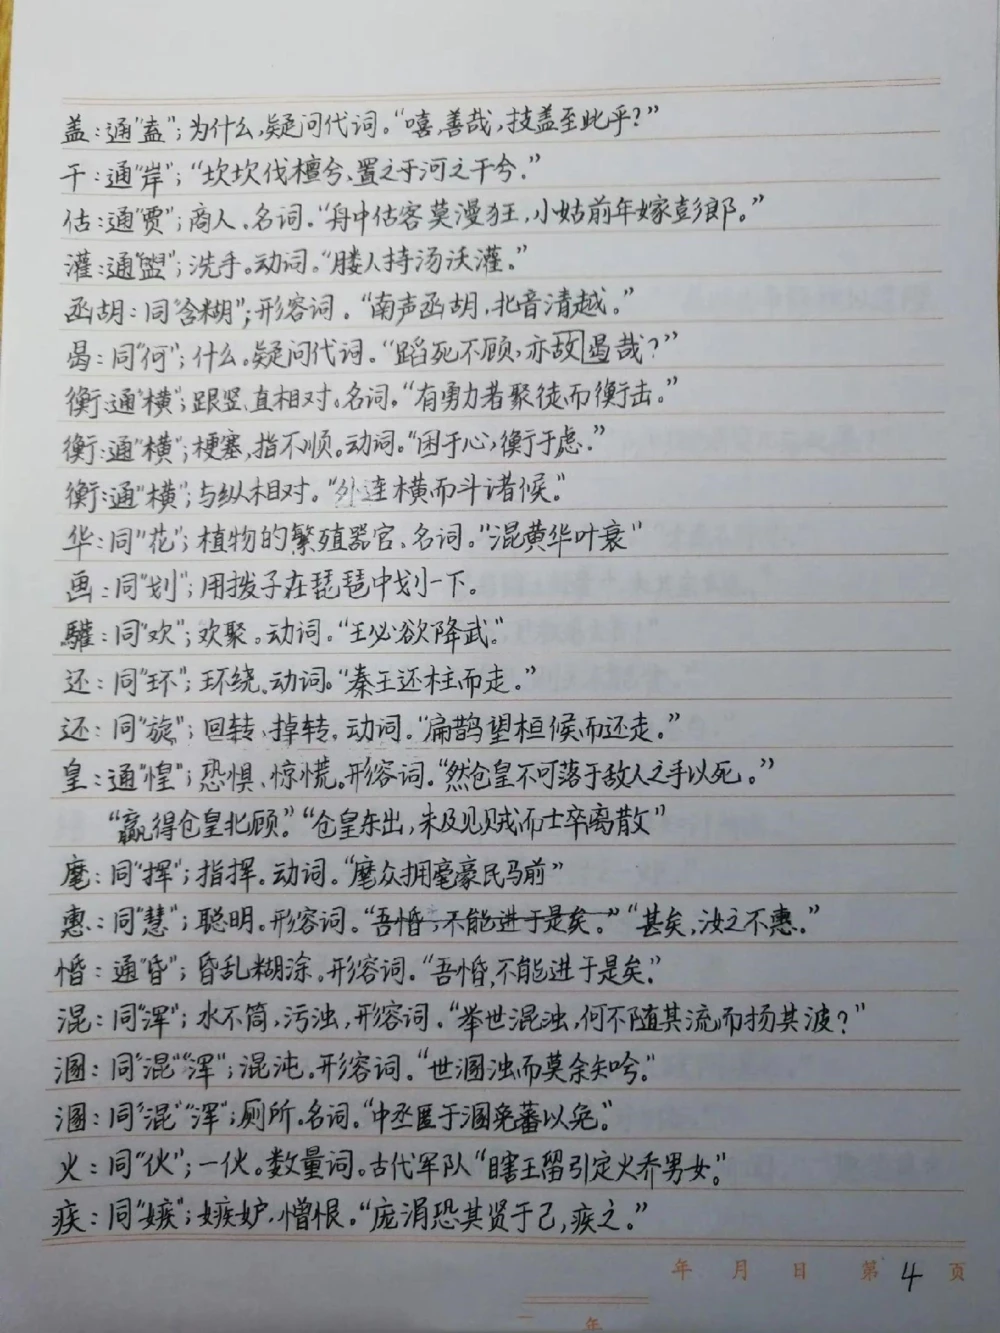 盖：通“盍”；为什么，疑问代词。“嘻，善哉，技盖至此乎？”
干：通“岸”；“坎坎伐檀兮、置之于河之干兮。”
估：通“贾”；商人、名词。“舟中估客莫漫狂，小姑前年嫁彭郎。”
灌：通“盥”；洗手。动词。“媵人持汤沃灌。”
函胡：同“含糊”；形容词。“南声函胡，北音清越。”
曷：同“何”；什么。疑问代词。“蹈死不顾，亦故曷哉？”
衡：通“横”；跟竖、直相对。名词。“有勇力者聚徒而衡击。”
衡：通“横”；梗塞，指不顺。动词。“困于心，衡于虑。”
衡：通“横”；与纵相对。“外连横而斗诸候。”
华：同“花”；植物的繁殖器官、名词。“混黄华叶衰”
画：同“划”；用拨子在琵琶中划一下。
驩：同“欢”；欢聚。动词。“王必欲降武。”
还：同“环”；环绕。动词。“秦王还柱而走。”
还：同“旋”；回转、掉转，动词。“扁鹊望桓候而还走。”
皇：通“惶”；恐惧、惊慌。形容词。“然仓皇不可落于敌人之手以死。”
“赢得仓皇北顾。”“仓皇东出，未及见贼而士卒离散”
麾：同“挥”；指挥。动词。“麾众拥豪民马前”
惠：同“慧”；聪明。形容词。“吾惛，不能进于是矣。”“甚矣，汝之不惠。”
惛：通“昏”；昏乱糊涂。形容词。“吾惛，不能进于是矣。”
混：同“浑”；水不简，污浊，形容词。“举世混浊，何不随其流而扬其波？”
溷：同“混”“浑”；混沌。形容词。“世溷浊而莫余知吟。”
溷：同“混”“浑”；厕所。名词。“中丞匿于溷藩以免。”
火：同“伙”；一伙。数量词。古代军队“瞎王留引定火乔男女。”
疾：同“嫉”；嫉妒，憎恨。“庞涓恐其贤于己，疾之。”
年 月 日 第4页
年